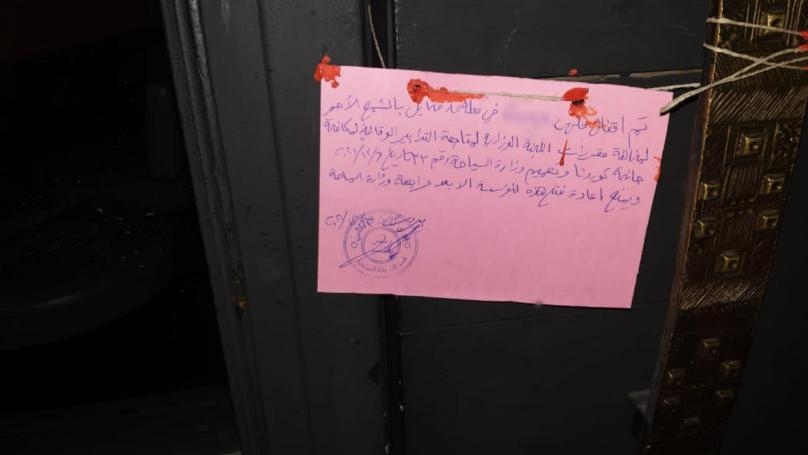 تم اقفال ملهى في محلة مار مخايل بالشمع الأحمر
لمخالفة مقررات اللجنة الوزارية لمتابعة التدابير الوقائية لمكافحة
جائحة كورونا وتعميم وزارة السياحة رقم ٣٢ تاريخ
ويمنع اعادة فتح هذه المؤسسة الا بعد مراجعة وزارة السياحة